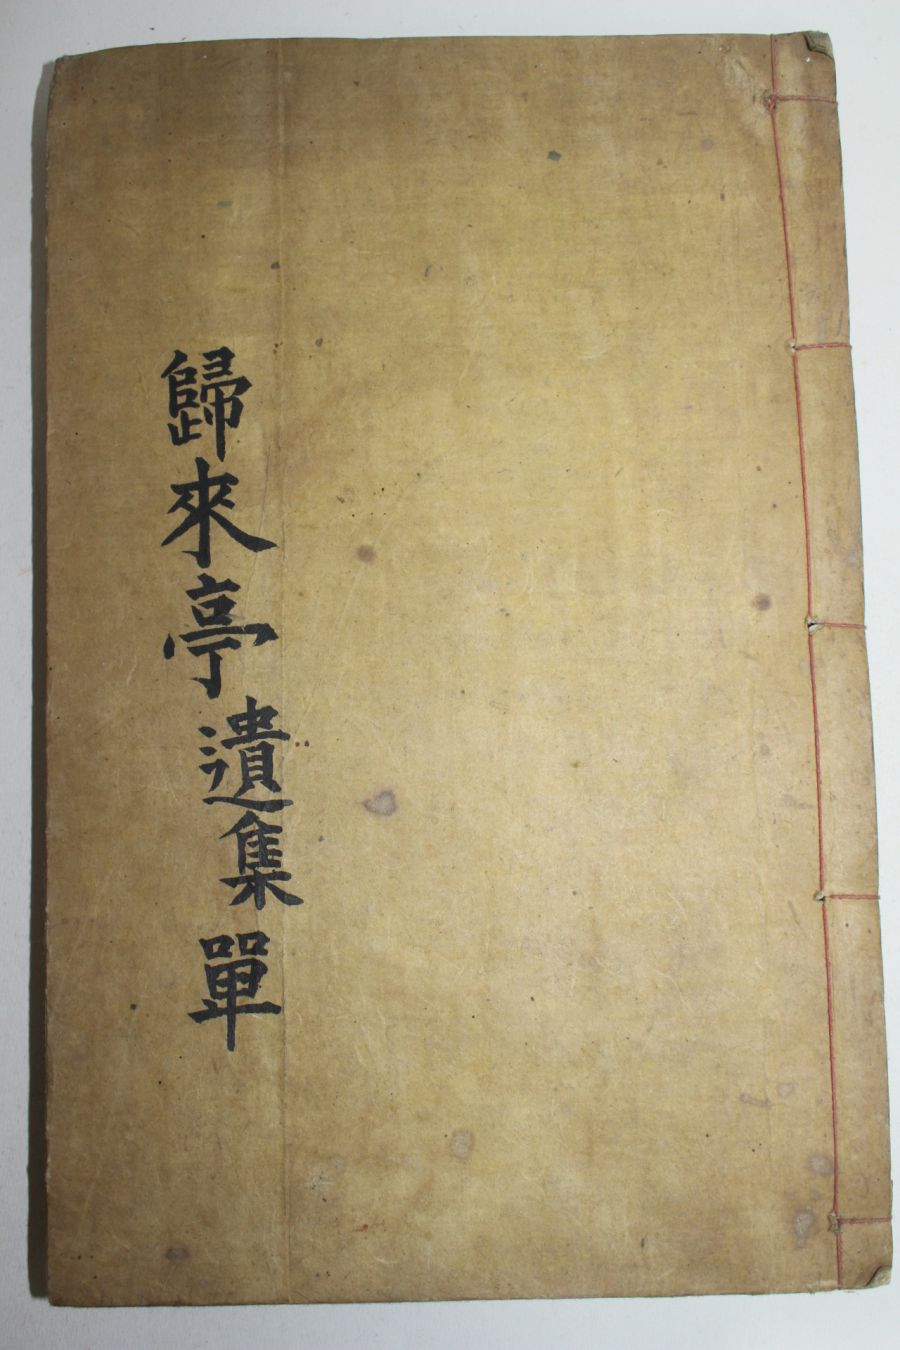 歸來亭遺集 單